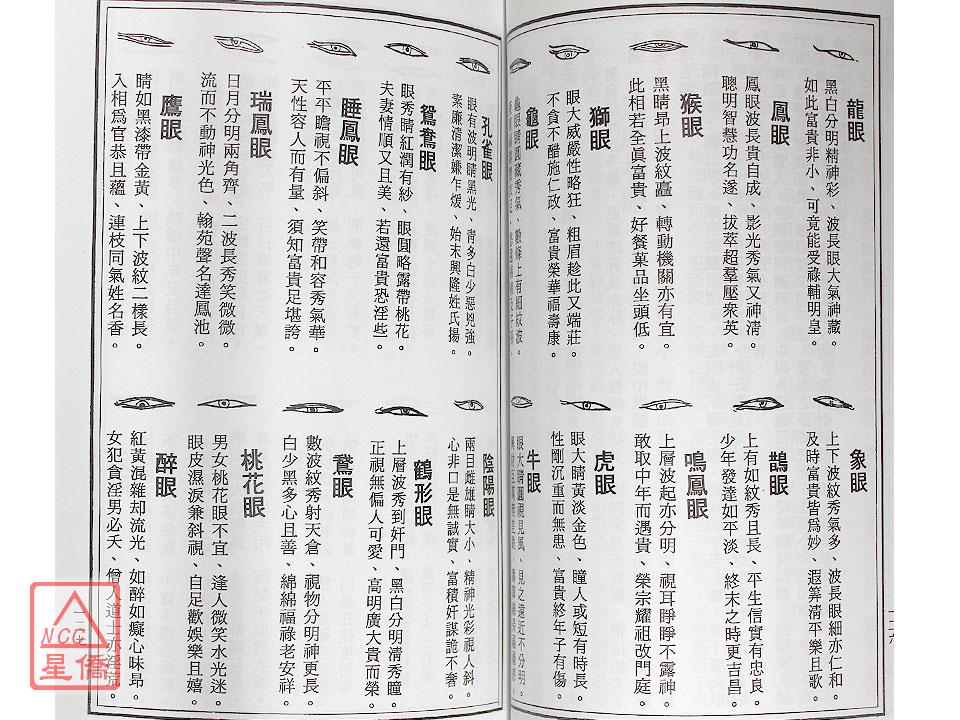 龍眼
黑白分明精神彩、波長眼大氣神藏、
如此富貴非小、可竟能受祿輔明皇。
鳳眼
鳳眼波長貴自成、影光秀氣又神淸、
聰明智慧功名遂、拔萃超羣壓衆英。
猴眼
黑睛昻上波紋矗、轉動機關亦有宜、
此相若全眞富貴、好餐菓品坐頭低。
獅眼
眼大威嚴性略狂、粗眉趁此又端莊、
不貪不酷施仁政、富貴榮華福壽康。
龜眼
龜眼睛圓藏秀氣、數條上有細紋波、
象眼
上下波紋秀氣多、波長眼細亦仁和、
及時富貴皆爲妙、遐筭清平樂且歌。
鵲眼
上有如紋秀且長、平生信實有忠良、
少年發達如平淡、終末之時更吉昌。
鳴鳳眼
上層波起亦分明、視耳睜睜不露神、
敢取中年而遇貴、榮宗耀祖改門庭。
虎眼
眼大睛黃淡金色、瞳人或短有時長、
性剛沉重而無患、富貴終年子有傷。
牛眼
眼大睛圓視見風、見之遠近不分明、
孔雀眼
眼有波明睛黑光、靑多白少惡兇強、
素廉淸潔嫌乍煖、始末興隆姓氏揚。
鴛鴦眼
眼秀睛紅潤有紗、眼圓略露帶桃花、
夫妻情順又且美、若還富貴恐淫些。
睡鳳眼
平平瞻視不偏斜、笑帶和容秀氣華、
天性容人而有量、須知富貴足堪誇。
瑞鳳眼
日月分明兩角齊、二波長秀笑微微、
流而不動神光色、翰苑聲名達鳳池。
鷹眼
睛如黑漆帶金黃、上下波紋二樣長、
入相爲官恭且蘊、連枝同氣姓名香。
陰陽眼
兩目雌雄睛大小、精神光彩視人斜、
心非口是無誠實、富積奸謀詭不奢。
鶴形眼
上層波秀到奸門、黑白分明淸秀瞳、
正視無偏人可愛、高明廣大貴而榮。
鵞眼
數波紋秀射天倉、視物分明神更長、
白少黑多心且善、綿綿福祿老安祥。
桃花眼
男女桃花眼不宜、逢人微笑水光迷、
眼皮濕淚兼斜視、自足歡娛樂且嬉。
醉眼
紅黃混雜却流光、如醉如癡心昧昻、
女犯貪淫男必夭、僧人道士亦淫荒。
NCC
星僑